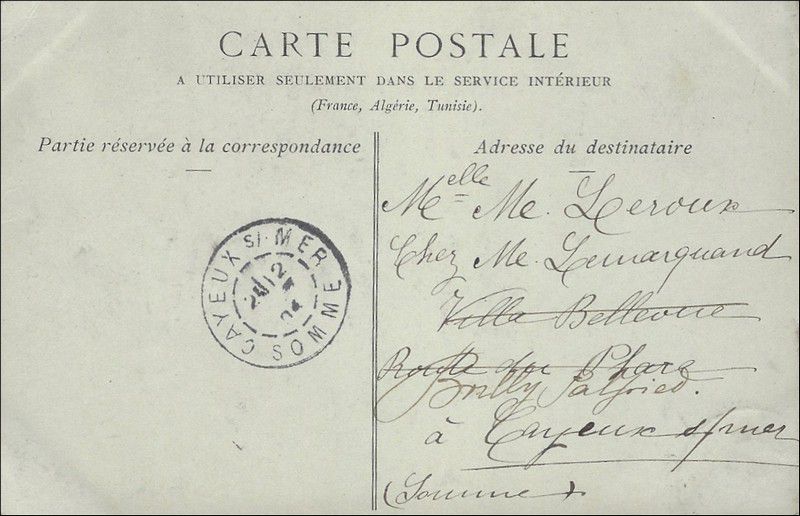 CARTE POSTALE
A UTILISER SEULEMENT DANS LE SERVICE INTÉRIEUR
(France, Algérie, Tunisie).
Partie réservée à la correspondance
Adresse du destinataire
Melle Me. Leroux
Chez Me. Lemarquand
Villa Bellevue
Route du Phare
à Cayeux s/mer
(Somme)
CAYEUX S/-MER
SOMME